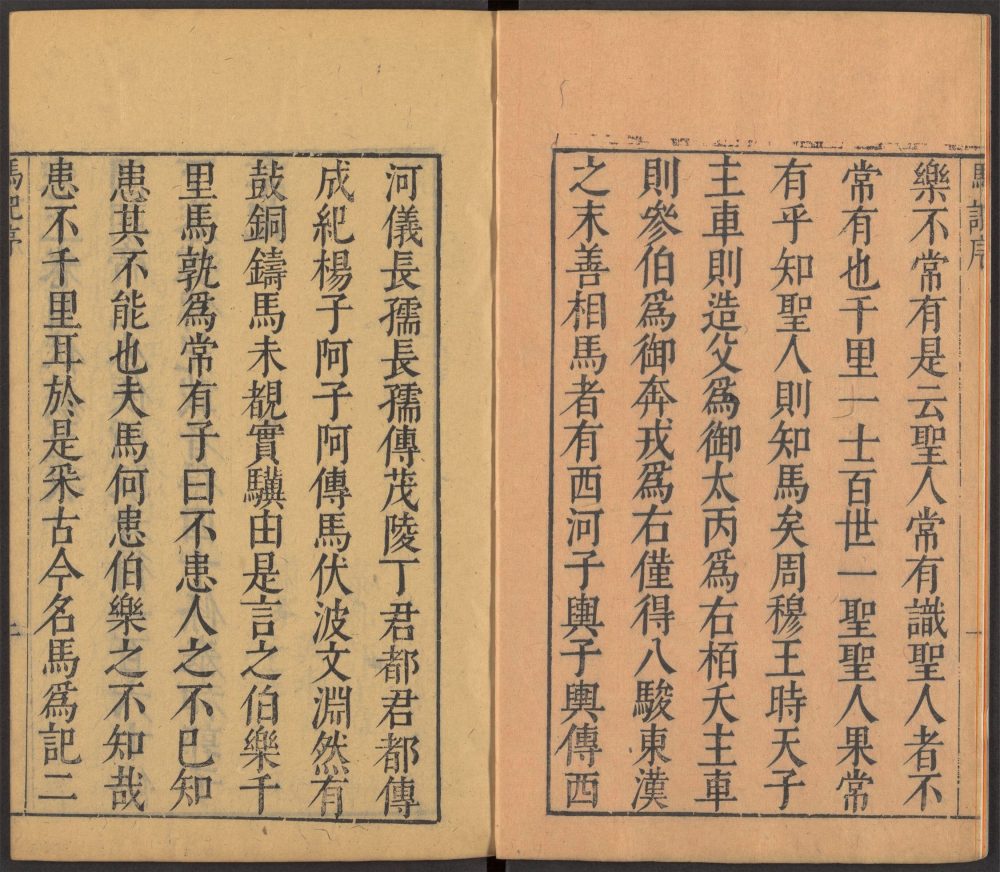 樂不常有是云聖人常有識聖人者不
常有也千里一士百世一聖聖人果常
有乎知聖人則知馬矣周穆王時天子
主車則造父爲御太丙爲右栢夭主車
則參伯爲御奔戎爲右僅得八駿東漢
之末善相馬者有西河子輿子輿傳西
河儀長孺長孺傳茂陵丁君都君都傳
成紀楊子阿子阿傳馬伏波文淵然有
鼓銅鑄馬未覩實驥由是言之伯樂千
里馬孰爲常有子曰不患人之不巳知
患其不能也夫馬何患伯樂之不知哉
患不千里耳於是采古今名馬爲記二
馬記序